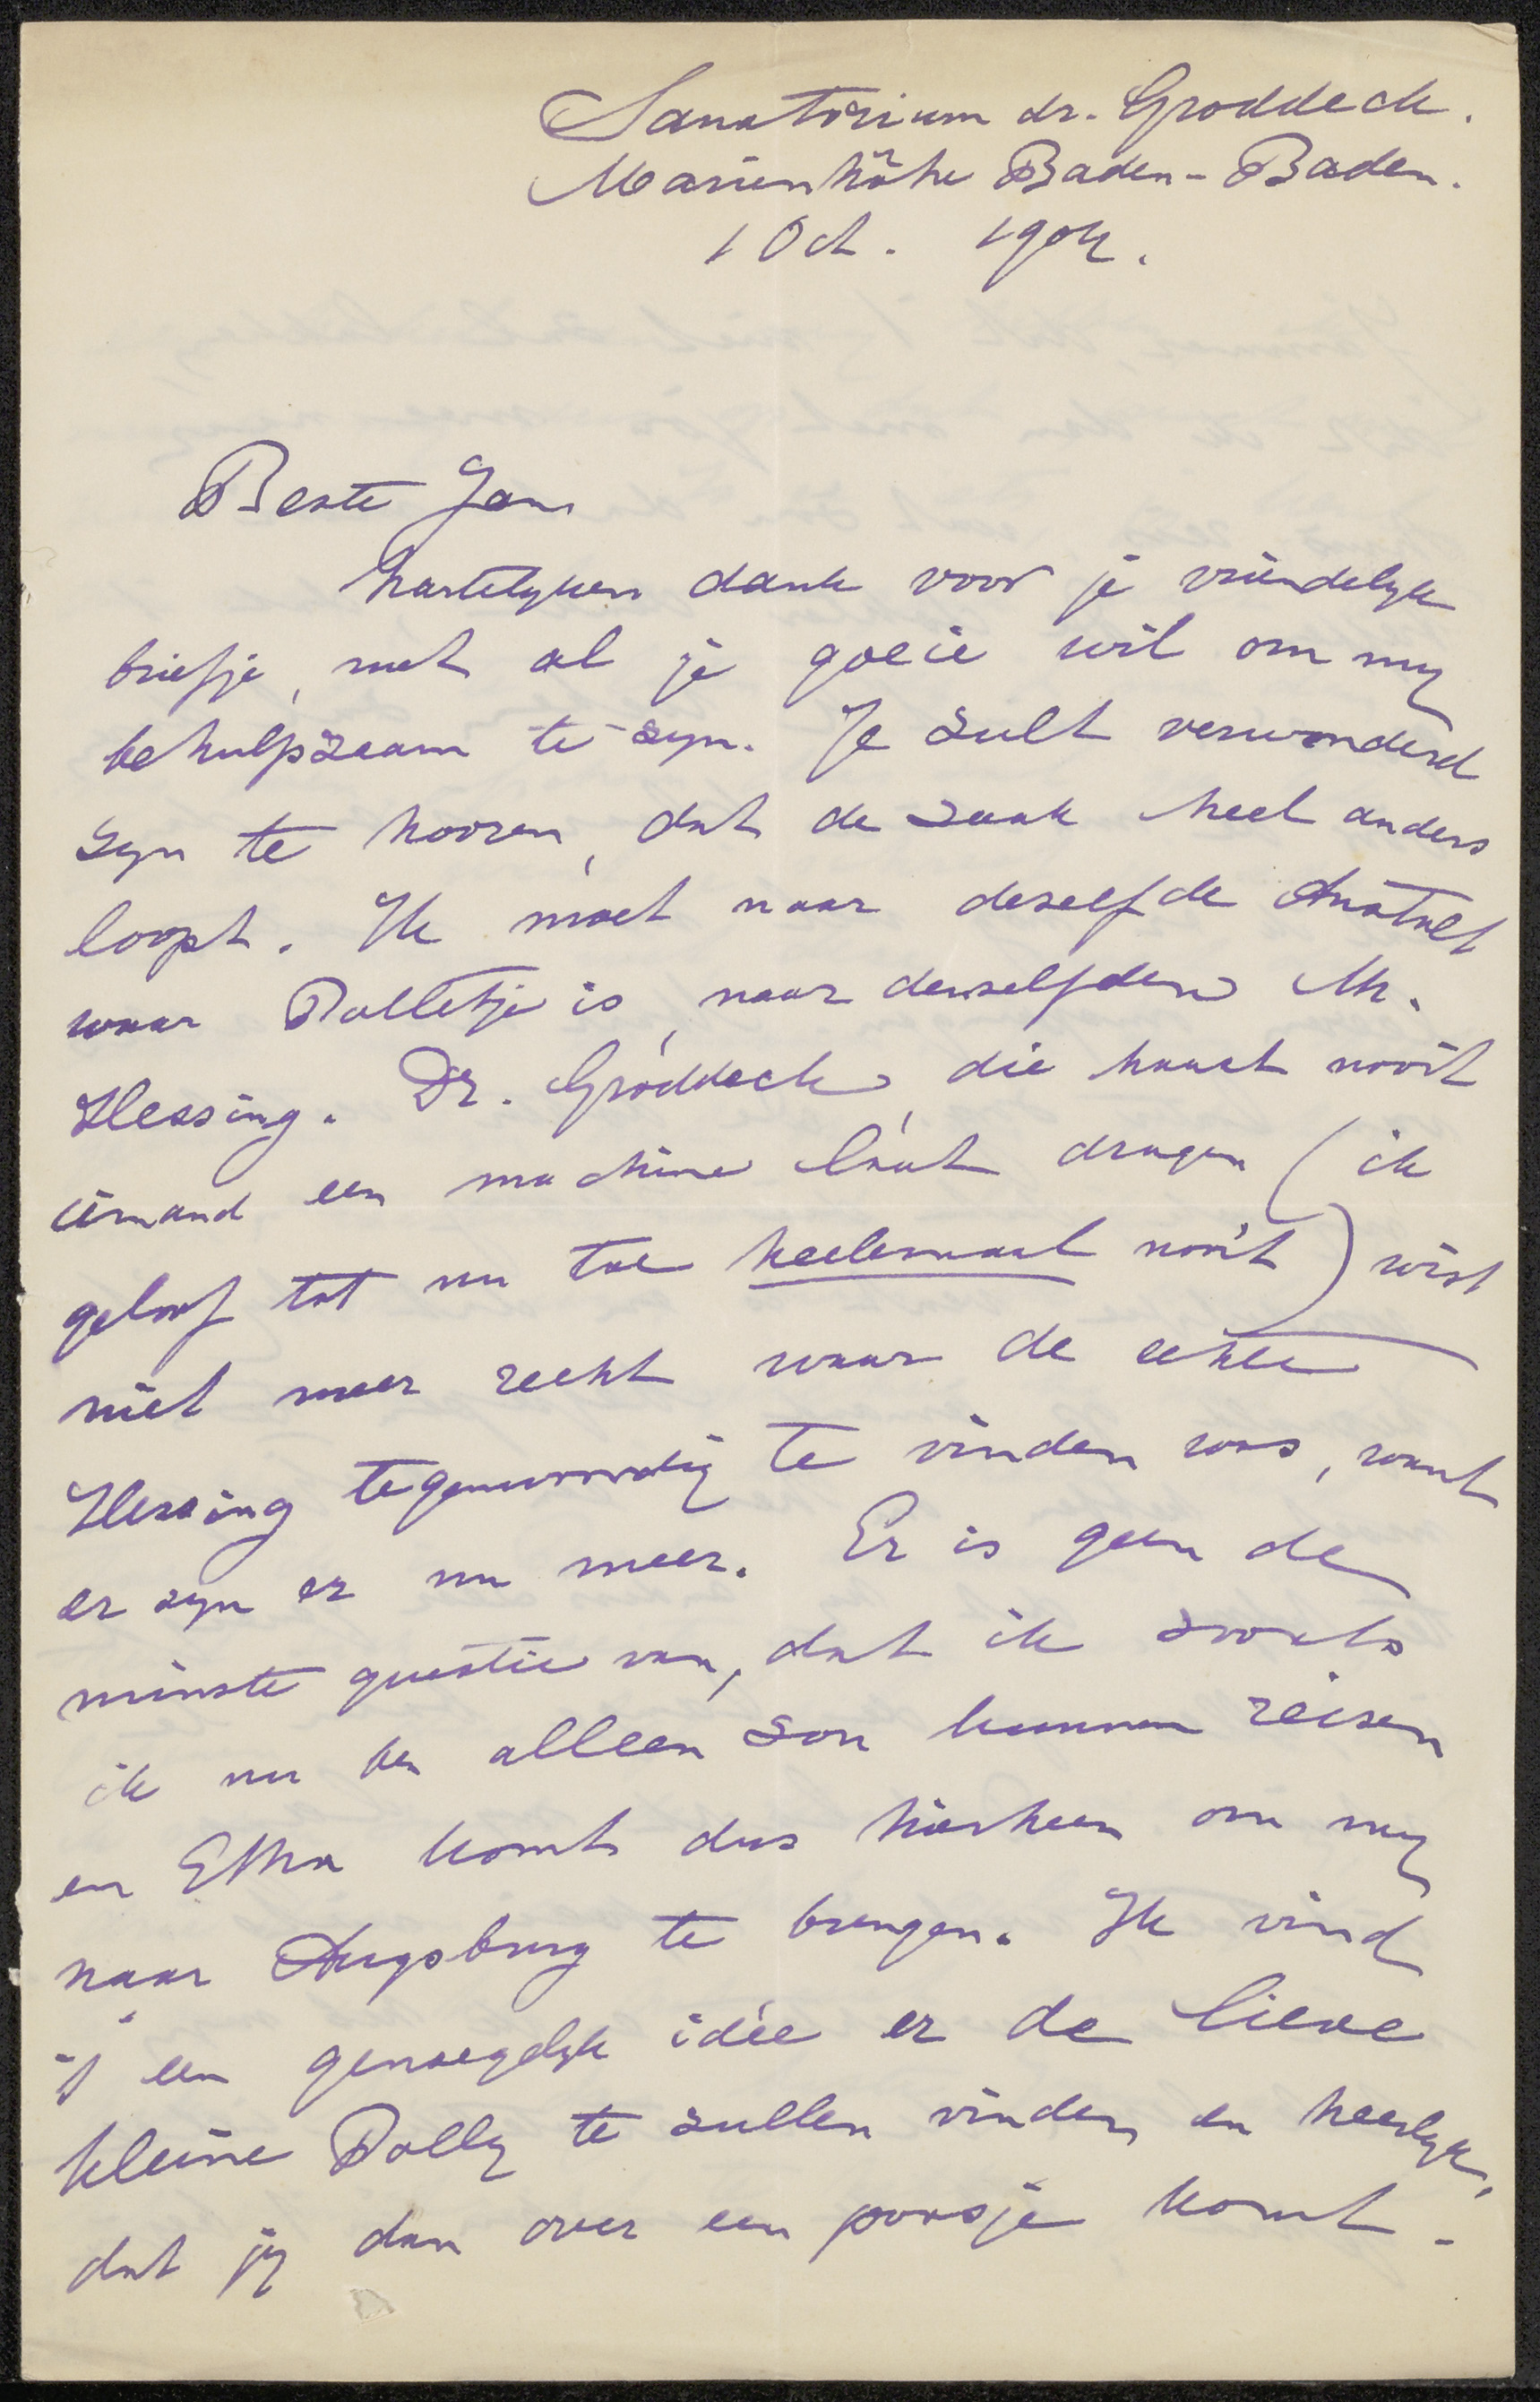 Sanatorium dr. Groddeck.
Marienhöhe Baden-Baden.
1 Oct. 1904.
Beste Jan
hartelyken dank voor je vriendelyk
briefje, met al je goeie wil om my
behulpzaam te zyn. Je zult verwonderd
zyn te hooren, dat de zaak heel anders
loopt. Ik moet naar dezelfde Anstalt
waar Dolletje is, naar denzelfden Mr.
Hessing. Dr. Gróddeck, die haast nooit
iemand een machine láát dragen (ik
geloof tot nu toe heelemaal nooit) wist
niet meer recht waar de echte
Hessing tegenwoordig te vinden was, want
er zyn er nu meer. Er is geen de
minste questie van, dat ik zooals
ik nu ben alleen zou kunnen reizen
en Etha komt dus hierheen om my
naar Augsburg te brengen. Ik vind
't een genoegelyk idée er de lieve
kleine Dolly te zullen vinden en heerlyk,
dat jy dan over een poosje komt.